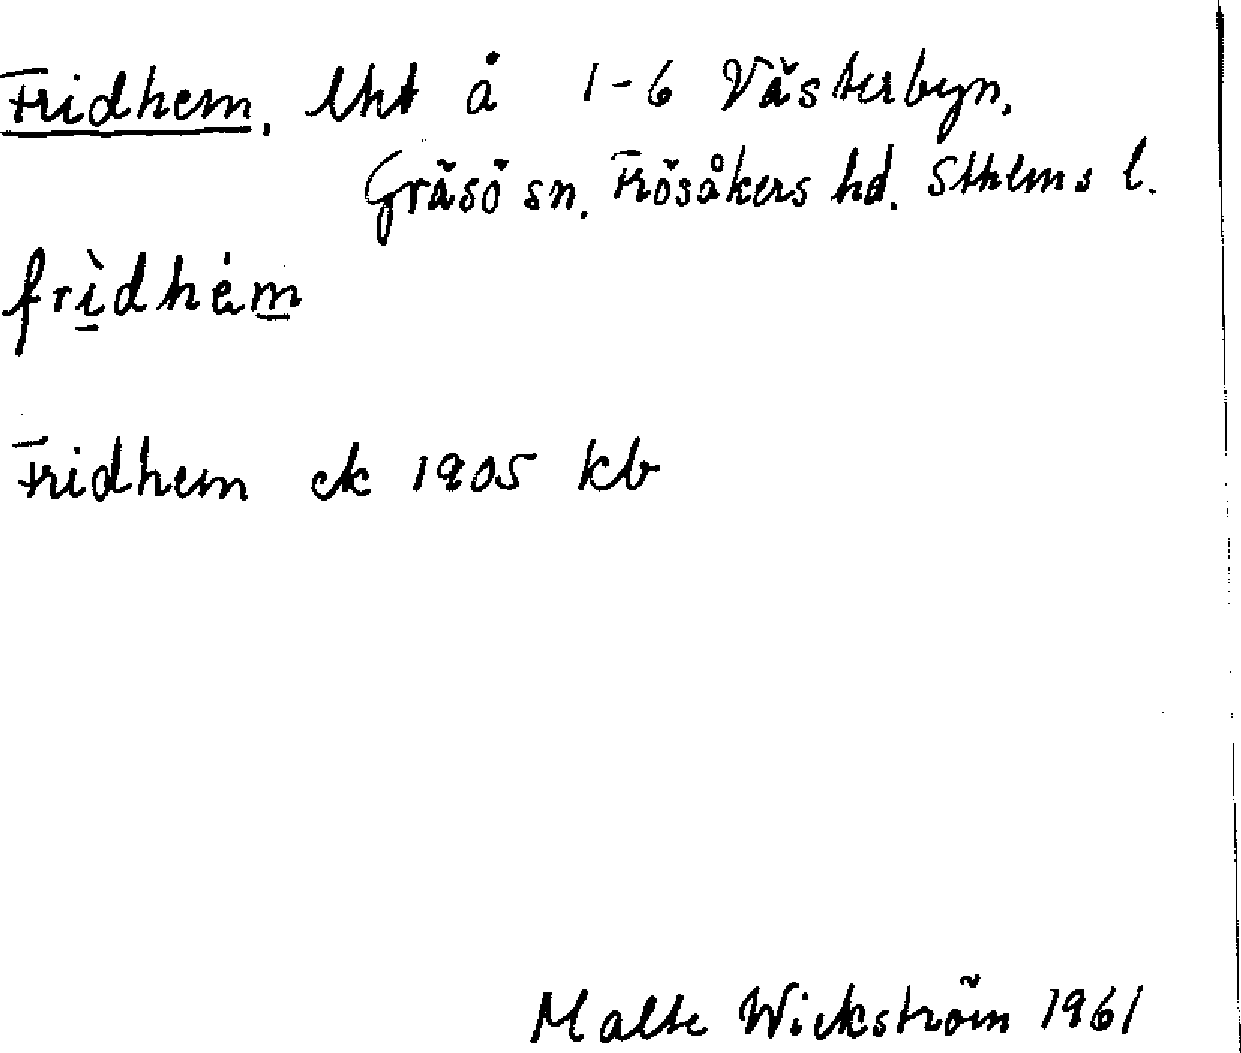 Fridhem, lht å 1-6 Västerbyn,
Gräsö sn, Frösåkers hd. Sthlms l.
frìdhém
Fridhem ck 1905 kb
Malte Wickström 1961